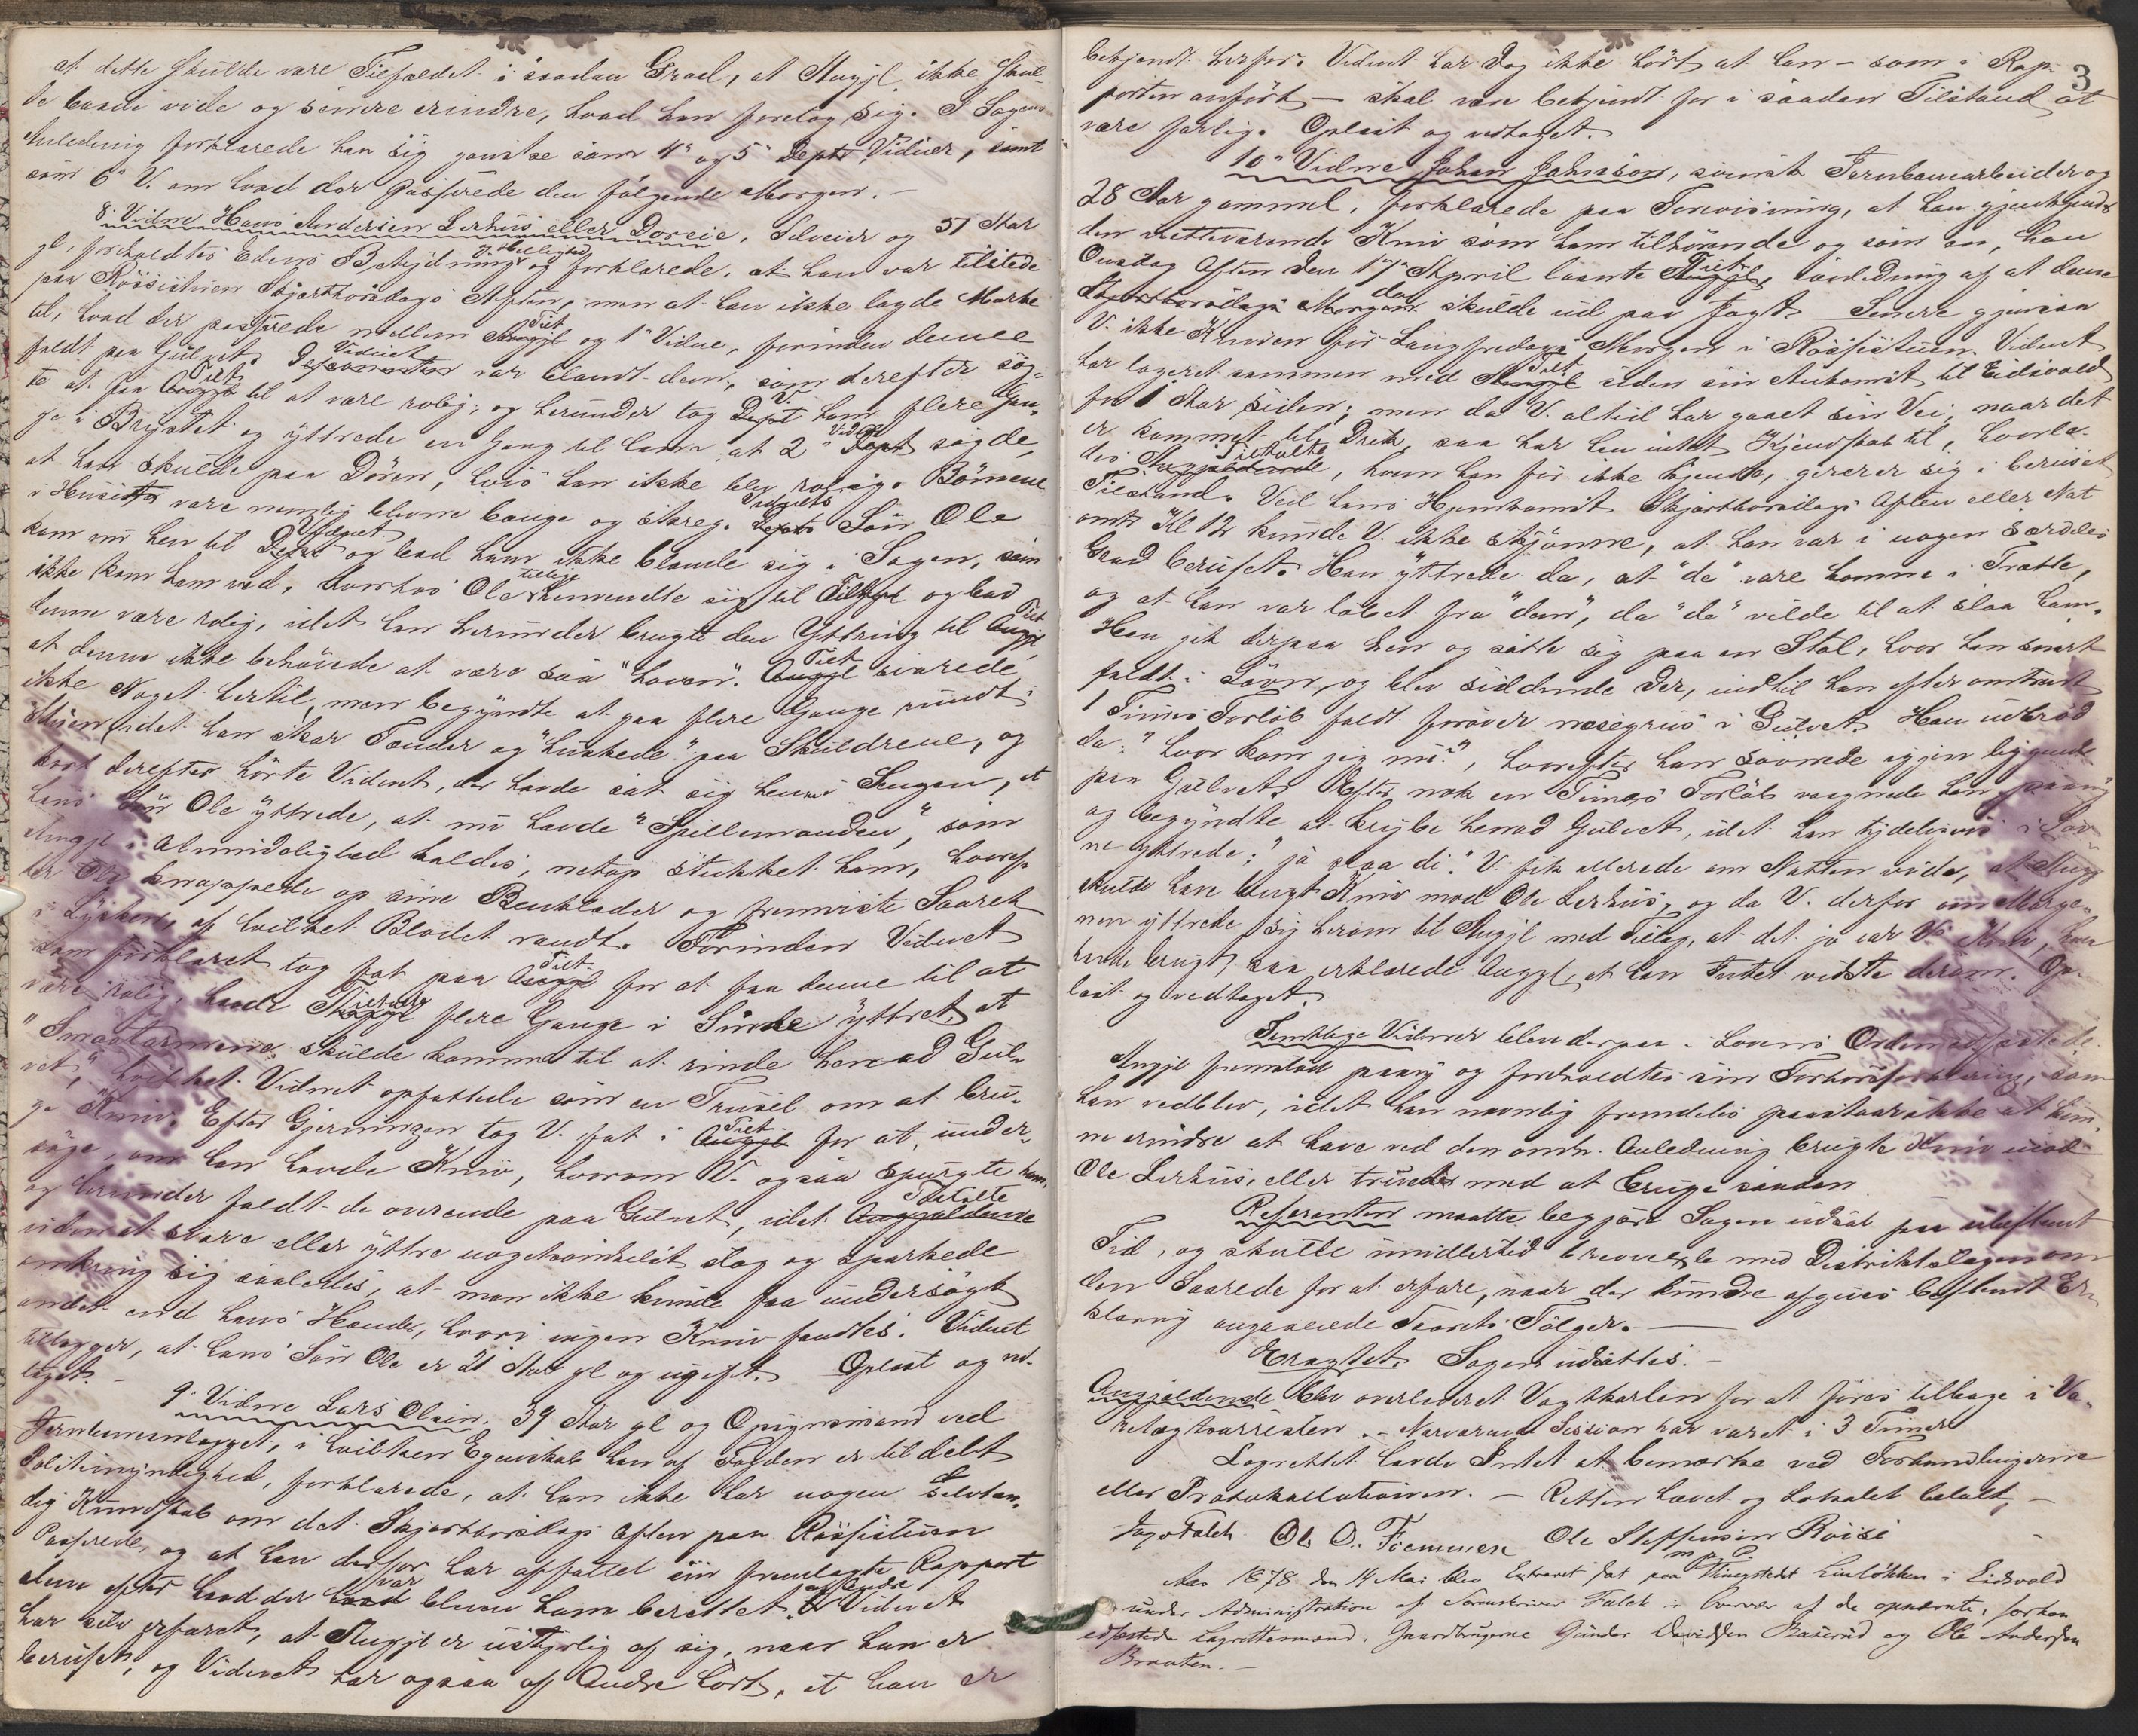 at dette skulde være Tilfældet i saadan Grad, at Angjl. ikke skul-
de kunne vide og senere erindre, hvad han foretog sig. I Sagens
Anledning forklarede han sig ganske som 4de og 5te Depts Vidner, samt
som 6te V. om hvad der passerede den følgende Morgen. -
8. Vidne Hans Andersen Lerhus eller Doreie, Selveier og 51 Aar
gl, foreholdtes Edens Betydning og Hellighed og forklarede, at han var tilstede
paa Røssistuen Skjærthorsdags Aften, men at han ikke lagde Mærke
til, hvad der passerede mellem Angjl Tilt og 1ste Vidne, forinden denne
faldt paa Gulvet. Deponenten Vidnet var blandt dem, som derefter søg-
te at faa Angjl Tilt til at være rolig, og herunder tog Dept V. ham flere Gan-
ge i Brystet og yttrede en Gang til ham at 2det Dept Vidne sagde,
at han skulde paa Døren, hvis han ikke blev rolig. Børnene
i Huset vare nemlig blevne bange og skreg. Depts Vidnets Søn Ole
kom nu hen til Dept Vidnet og bad ham ikke blande sig i Sagen, som
ikke kom ham ved, hvorhos Ole tillige henvendte sig til Tiltalte og bad
denne være rolig, idet han herunder brugte den Yttring til Angjl Tilt,
at denne ikke behøvede at være saa "hoven". Angjl Tilt svarede
ikke Noget hertil, men begyndte at gaa flere Gange rundt i
Stuen, idet han skar Tænder og "huskede" paa Skuldrene, og
kort derefter hørte Vidnet, der havde sat sig hen i Sengen, at
hans Søn Ole yttrede, at nu havde "Spillemanden", som
Angjl i Almindelighed kaldes, netop stukket ham, hvoref-
ter Ole knappede op sine Benklæder og fremviste Saaret
i Lysken, af hvilket Blodet randt. Forinden Vidnet
som forklaret tog fat paa Angjl Tilt for at faa denne til at
være rolig, havde Angjl Tiltalte flere Gange i Sinde yttret, at
"Smaatarmene skulde komme til at rinde henad Gul-
vet", hvilket Vidnet opfattede som en Trusel om at bru-
ge Kniv. Efter Gjerningen tog V. fat i Angjl Tilt for at under-
søge, om han havde Kniv, hvorom V. ogsaa spurgte ham,
og herunder faldt de overende paa Gulvet, idet Angjældende Tiltalte
uden at svare eller yttre nogetsomhelst slog og sparkede
omkring sig saaledes, at man ikke kunde faa undersøgt
andet end hans Hænder, hvori ingen Kniv fandtes. Vidnet
tillægger, at hans Søn Ole er 21 Aar gl og ugift. Oplæst og ved-
taget. -
9. Vidne Lars Olsen, 39 Aar gl og Opsynsmand ved
Jernbaneanlægget, i hvilken Egenskab han af Fogden er tildelt
Politimyndighed, forklarede, at han ikke har nogen selvstæn-
dig Kundskab om det Skjærthorsdags Aften paa Røssistuen
Passerede, og at han derfor har affattet sin fremlagte Rapport
alene efter hvad der var bleven ham berettet af Andre. Vidnet
har selv erfaret, at Angjl er ustyrlig af sig, naar han er
beruset, og Vidnet har ogsaa af Andre hørt, at han er
3
bekjendt herfor. Vidnet har dog ikke hørt at han - som i Rap-
porten anført - skal være bekjendt for i saadan Tilstand at
være farlig. Oplæst og vedtaget.
10de Vidne Johan Johnson, svensk Jernbanearbeider og
28 Aar gammel, forklarede paa Forevisning, at han gjenkjendte
den retteværende Kniv som ham tilhørende og som en, han
Onsdag Aften den 17de April laante Angjl Tilt, i Anledning af at denne
Skjærthorsdags Morgen da skulde ud paa Jagt. Senere gjensaa
V. ikke Kniven før Langfredags Morgen i Røssistuen. Vidnet
har logeret sammen med Angjl Tilt siden sin Ankomst til Eidsvold
for 1 Aar siden; men da V. altid har gaaet sin Vei, naar det
er kommet til Drik, saa har han intet Kjendskab til, hvorle-
des Angjældende Tiltalte, hvem han før ikke kjendte, gererer sig i beruset
Tilstand. Ved hans Hjemkomst Skjærthorsdags Aften eller Nat
omtr Kl 12 kunde V. ikke skjønne, at han var i nogen særdeles
Grad beruset. Han yttrede da, at "de" vare komne i Trætte,
og at han var løbet fra "dem", da "de" vilde til at slaa ham.
Han gik derpaa hen og satte sig paa en Stol, hvor han snart
faldt i Søvn, og blev siddende der, indtil han efter omtrent
1 Times Forløb faldt forover næsegrus i Gulvet. Han udbrød
da: "hvor kom jeg nu?", hvorefter han sovnede igjen liggende
paa Gulvet. Efter nok en Times Forløb vaagnede han paany
og begyndte at krybe henad Gulvet, idet han tydeligvis i Søv-
ne yttrede: "ja slaa di". V. fik allerede om Natten vide, at Angjl
skulde have brugt Kniv mod Ole Lerhus, og da V. derfor om Morge-
nen yttrede sig herom til Angjl med Tillæg, at det jo var V's Kniv, han
havde brugt, saa erklærede Angjl, at han Intet vidste derom. Op-
læst og vedtaget.
Samtlige Vidner bleve derpaa i Lovens Orden edfæstede.
Angjl fremstod paany og foreholdtes sin Forhørsforklaring, som
han vedblev, idet han nemlig fremdeles paastaar ikke at kun-
ne erindre at have ved den omh. Anledning brugt Kniv mod
Ole Lerhus, eller truet med at bruge saadan.
Referenten maatte begjære Sagen udsat paa ubestemt
Tid, og skulde imidlertid brevvexle med Distriktslægen om
den Saarede for at erfare, naar der kunde afgives bestemt Er-
klæring angaaende Saarets Følger. -
Eragtet: Sagen udsættes. -
Angjældende blev overleveret Vagtkarlen for at føres tilbage i Va-
retægtsarresten. - Nærværende Session har varet i 3 Timer
Lagrettet havde Intet at bemærke ved Forhandlingerne
eller Protokollationen. - Retten hævet og Lokalet betalt. -
Fago Falch Ol O. Fremmen Ole Steffensen Røise
m. p. P.
Aar 1878 den 14 Mai blev Extraret sat paa Thingstedet Linløkken i Eidsvold
under Administration af Sorenskriver Falch i Overvær af de opnævnte, forhen
edfæstede Lagrettemænd, Gaardbrugerne Gunder Davidsen Baserud og Ole Andersen
Braaten. -